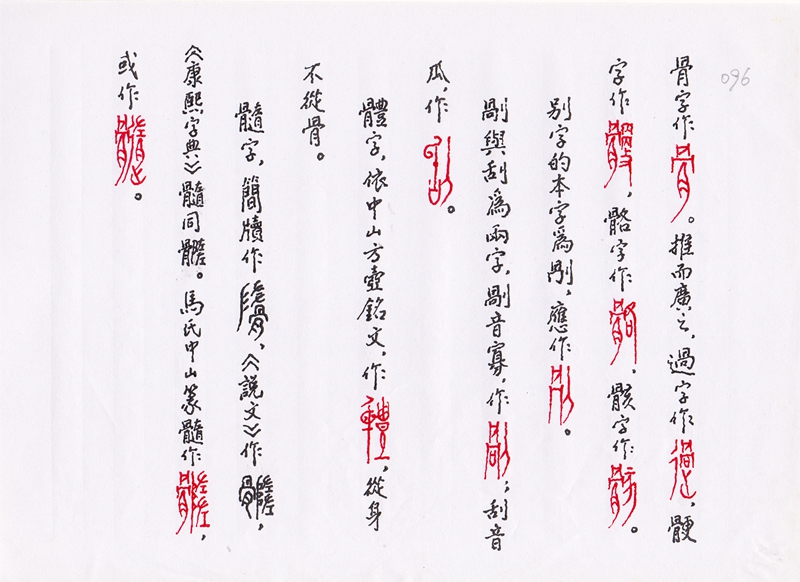 096
骨字作。推而廣之，過字作，骾
字作，骼字作，骸字作。
別字的本字爲剮，應作。
剮與刮爲兩字，剮音寡，作；刮音
瓜，作。
體字，依中山方壺銘文，作，從身
不從骨。
髓字，簡牘作，《說文》作，
《康熙字典》髓同。馬氏中山篆髓作，
或作。